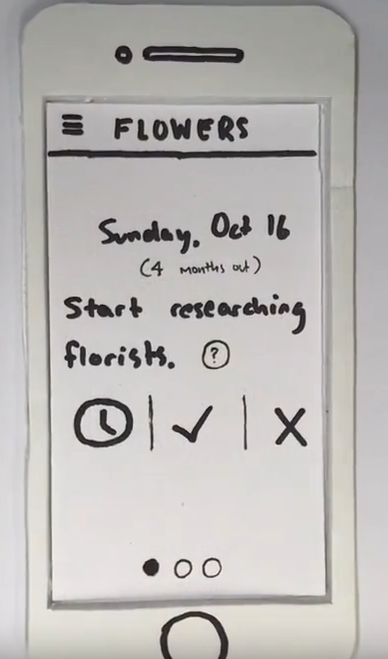 FLOWERS
Sunday, Oct 16
(4 months out)
Start researching
florists. ?